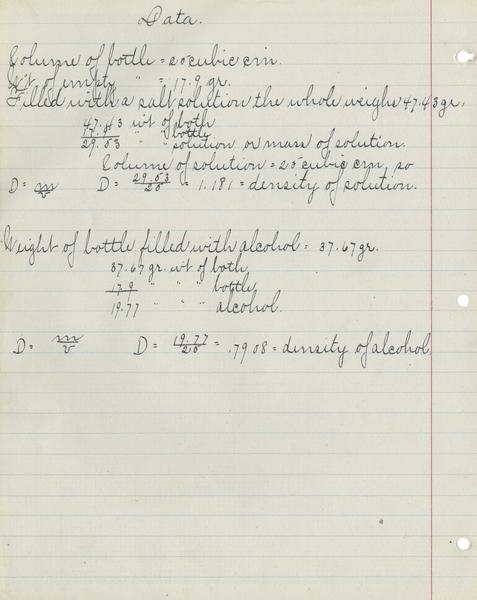 Data.
Volume of bottle = 25 cubic cm.
Wt of empty " = 17.9 gr.
Filled with a salt solution the whole weighs 47.43 gr.
47.43 wt of both
17.9 " " bottle
29.53 " " solution or mass of solution.
Volume of solution = 25 cubic cm, so
D = m/v D = 29.53/25 = 1.181 = density of solution.
Weight of bottle filled with alcohol = 37.67 gr.
37.67 gr. wt of both
17.9 " " " bottle
19.77 " " " alcohol.
D = m/v D = 19.77/25 = .7908 = density of alcohol